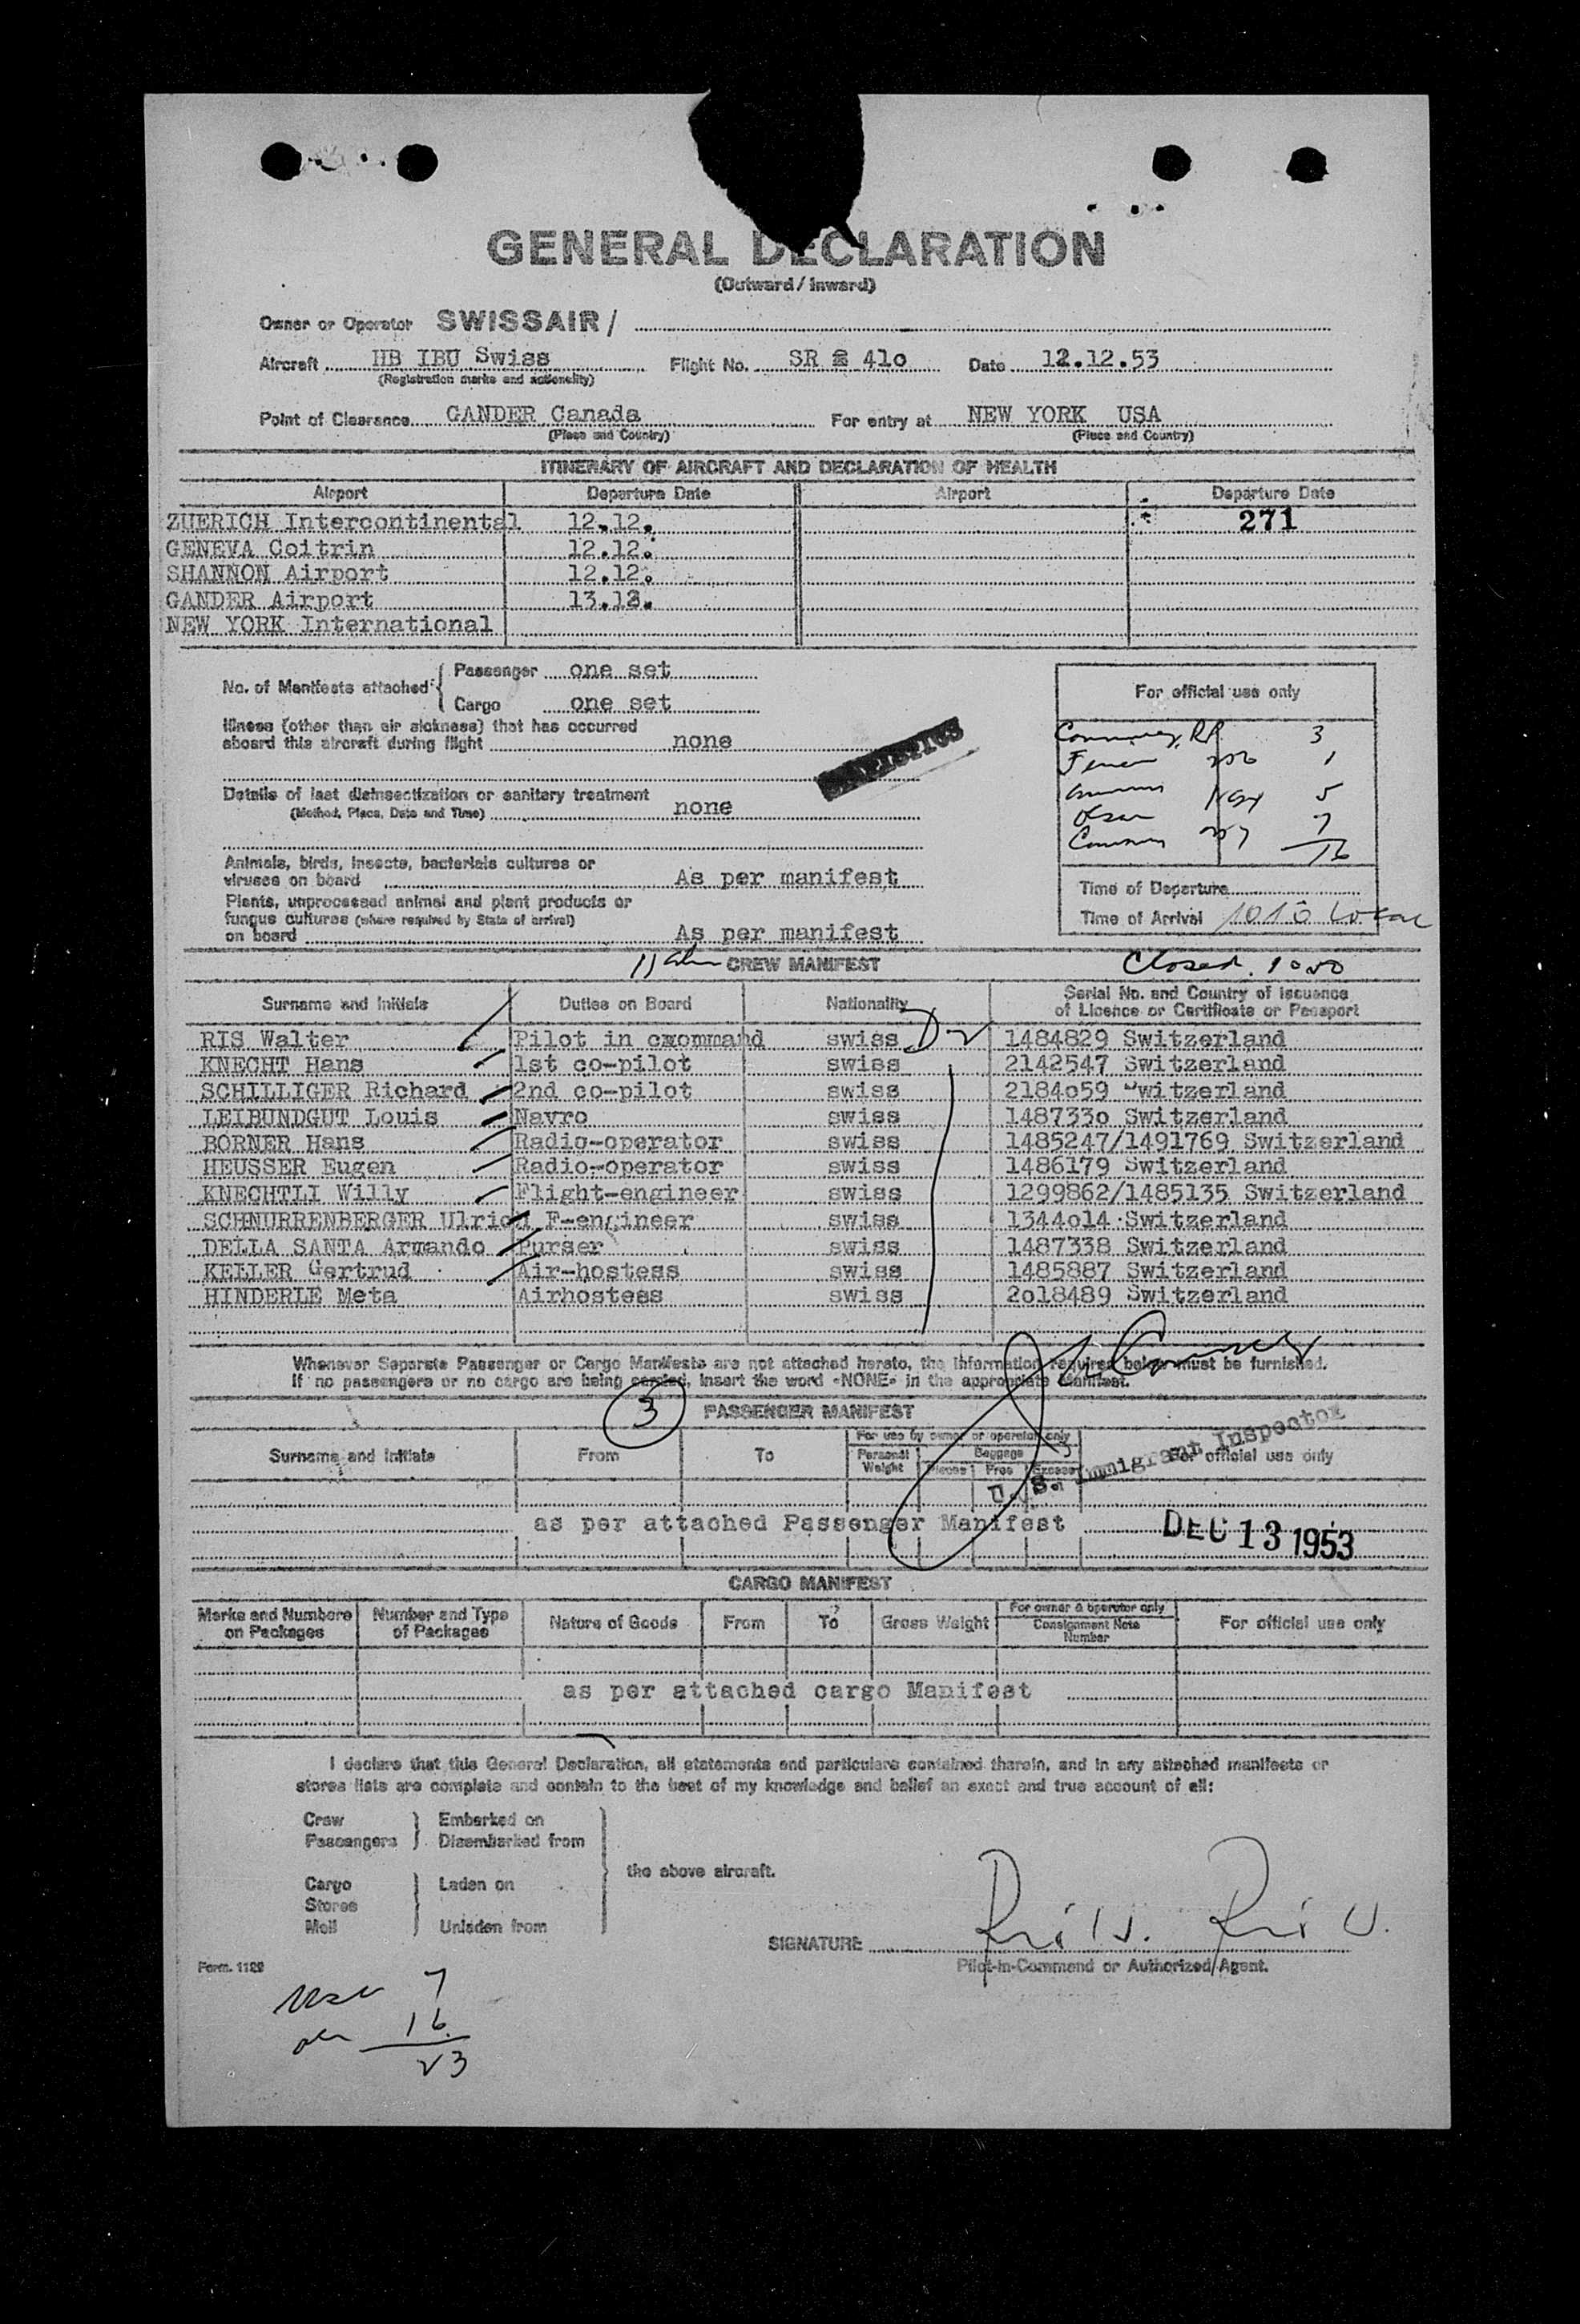 GENERAL DECLARATION
(Outward / Inward)
Owner or Operator SWISSAIR /
Aircraft HB IBU Swiss Flight No. SR 410 Date 12.12.53
(Registration marks and nationality)
Point of Clearance GANDER Canada For entry at NEW YORK USA
(Place and Country) (Place and Country)
ITINERARY OF AIRCRAFT AND DECLARATION OF HEALTH
Airport Departure Date Airport Departure Date
ZUERICH Intercontinental 12.12. 271
GENEVA Coitrin 12.12.
SHANNON Airport 12.12.
GANDER Airport 13.12.
NEW YORK International
No. of Manifests attached
Passenger one set
Cargo one set
Illness (other than air sickness) that has occurred
aboard this aircraft during flight none
Details of last disinsectization or sanitary treatment
(Method, Place, Date and Time) none
Animals, birds, insects, bacterials cultures or
viruses on board As per manifest
Plants, unprocessed animal and plant products or
fungus cultures (where required by State of arrival)
on board As per manifest
For official use only
3
1
5
7
16
Time of Departure
Time of Arrival 1010 Local
CREW MANIFEST Closed. 1050
Surname and Initials Duties on Board Nationality Serial No. and Country of Issuance
of Licence or Certificate or Passport
RIS Walter Pilot in cxommand swiss 1484829 Switzerland
KNECHT Hans 1st co-pilot swiss 2142547 Switzerland
SCHILLIGER Richard 2nd co-pilot swiss 2184o59 Switzerland
LEIBUNDGUT Louis Navro swiss 148733o Switzerland
BORNER Hans Radio-operator swiss 1485247/1491769 Switzerland
HEUSSER Eugen Radio-operator swiss 1486179 Switzerland
KNECHTLI Willy Flight-engineer swiss 1299862/1485135 Switzerland
SCHNURRENBERGER Ulrich F-engineer swiss 1344o14 Switzerland
DELLA SANTA Armando Purser swiss 1487338 Switzerland
KELLER Gertrud Air-hostess swiss 1485887 Switzerland
HINDERLE Meta Airhostess swiss 2o18489 Switzerland
Whenever Separate Passenger or Cargo Manifests are not attached hereto, the information required below must be furnished.
If no passengers or no cargo are being carried, insert the word «NONE» in the appropriate Manifest.
3 PASSENGER MANIFEST
Surname and Initials From To For use by owner or operator only For official use only
Personal Weight Baggage
Pieces Free Excess
U. S. Immigrant Inspector
as per attached Passenger Manifest
DEC 13 1953
CARGO MANIFEST
Marks and Numbers on Packages Number and Type of Packages Nature of Goods From To Gross Weight For owner & operator only Consignment Note Number For official use only
as per attached cargo Manifest
I declare that this General Declaration, all statements and particulars contained therein, and in any attached manifests or
stores lists are complete and contain to the best of my knowledge and belief an exact and true account of all:
Crew Embarked on
Passengers Disembarked from
the above aircraft.
Cargo Laden on
Stores
Mail Unladen from
SIGNATURE Ris W. Ris W.
Pilot-in-Command or Authorized Agent.
Form. 1129
7
16
23